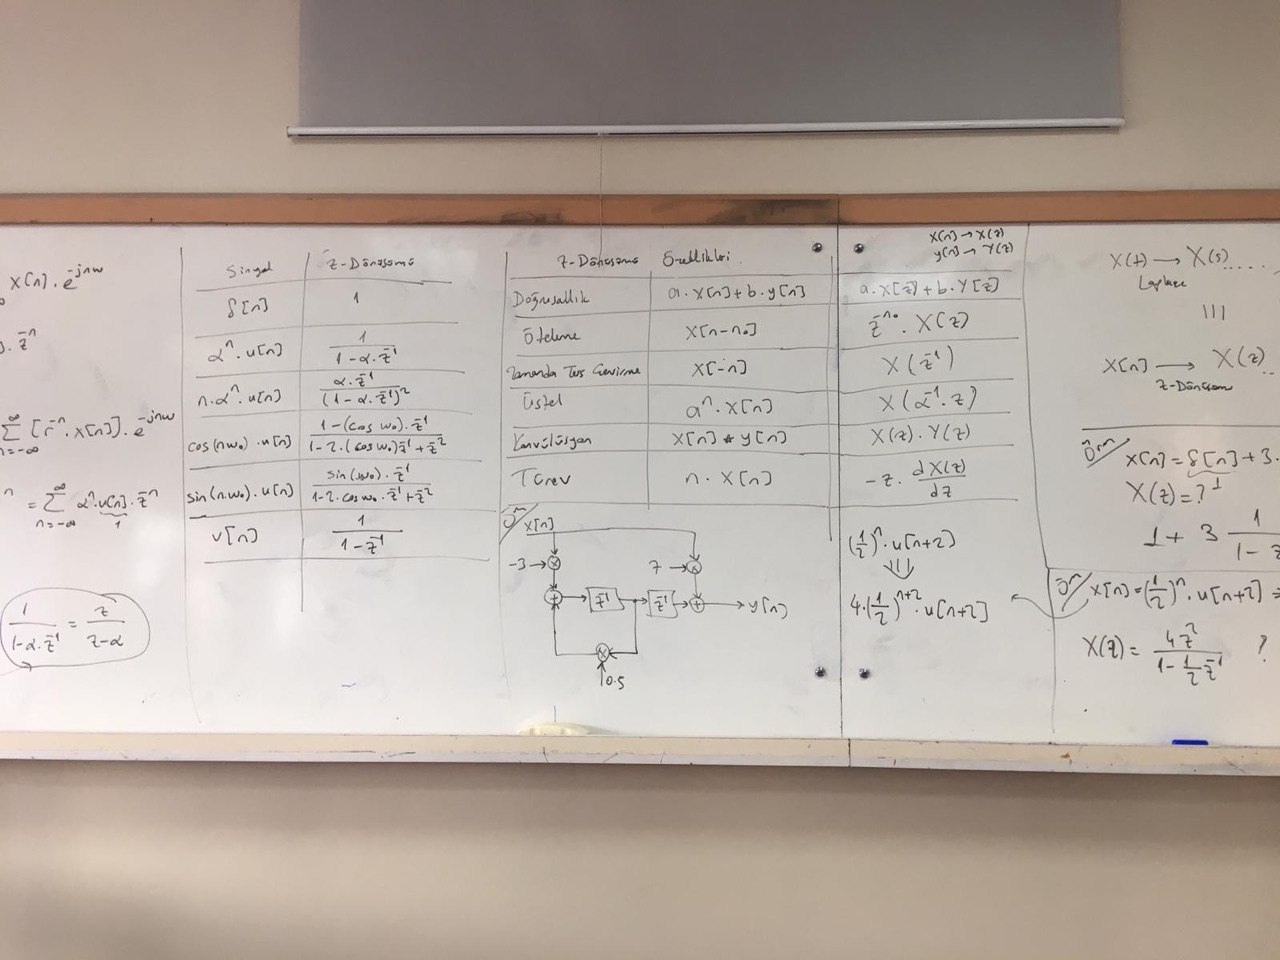 x[n] . e^-jnw
). z^-n
∑ n=-∞ ^∞ [r^-n . x[n]] . e^-jnw
n = ∑ n=-∞ ^∞ α^n . u[n] . z^-n
1
1/(1-α.z^-1) = z/(z-α)
Sinyal Z-Dönüşümü
δ[n] 1
α^n . u[n] 1/(1-α.z^-1)
n.α^n . u[n] α.z^-1/(1-α.z^-1)^2
cos(nw₀) . u[n] 1-(cos w₀).z^-1/1-2.(cos w₀)z^-1+z^-2
sin(n.w₀).u[n] sin(w₀).z^-1/1-2.cos w₀.z^-1+z^-2
u[n] 1/(1-z^-1)
Z-Dönüşümü Özellikleri
x[n] → X(z)
y[n] → Y(z)
Doğrusallık a.x[n]+b.y[n] a.X[z]+b.Y[z]
Öteleme x[n-n₀] z^-n₀ . X(z)
Zamanda Ters Çevirme x[-n] X(z^-1)
Üstel a^n . x[n] X(α^-1 . z)
Konvülüsyon x[n] * y[n] X(z).Y(z)
Türev n . x[n] -z . dX(z)/dz
Örn x[n]
-3 → x
7 → x
+ z^-1 z^-1 + → y[n]
x
0.5
(1/2)^n . u[n+2]
4.(1/2)^n+2 . u[n+2]
x(t) → X(s).....
Laplace
x[n] → X(z)..
Z-Dönüşüm
Örn x[n]=δ[n]+3.
X(z)=? 1
1 + 3 1/1-z
Örn x[n]=(1/2)^n . u[n+2] =
X(z)= 4z^2/(1-1/2 z^-1) ?